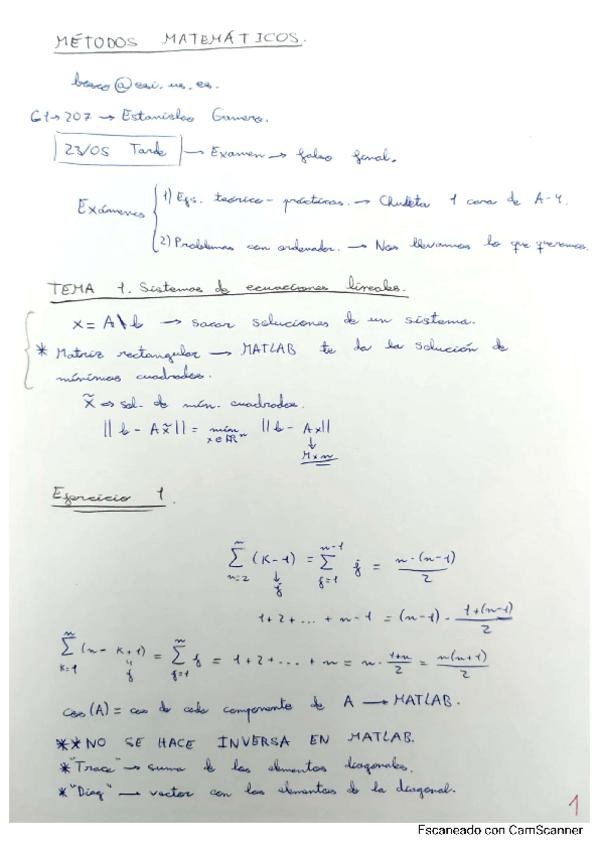 MÉTODOS MATEMÁTICOS.
@esi.us.es.
G1→207→ Estanislao Gamero.
23/05 Tarde → Examen → falso final.
Exámenes { 1) Ejs. teórico-prácticos. → Chuleta 1 cara de A-4.
2) Problemas con ordenador. → Nos llevamos lo que queramos.
TEMA 1. Sistemas de ecuaciones lineales.
x = A\b → sacar soluciones de un sistema.
* Matriz rectangular → MATLAB te da la solución de
mínimos cuadrados.
x̃ → sol. de mín. cuadrados.
||b - Ax̃|| = mín x∈ℝⁿ ||b - Ax||
↓
M×n
Ejercicio 1.
∑ n=2 n (K-1) = ∑ j=1 n-1 j = n·(n-1)/2
↓
j
1+2+...+n-1 = (n-1)·(1+(n-1))/2
∑ K=1 n (n-K+1) = ∑ j=1 n j = 1+2+...+n = n·(1+n)/2 = n(n+1)/2
j
cos(A) = cos de cada componente de A → MATLAB.
**NO SE HACE INVERSA EN MATLAB.
*"Trace" → suma de los elementos diagonales.
*"Diag" → vector con los elementos de la diagonal.
1
Escaneado con CamScanner